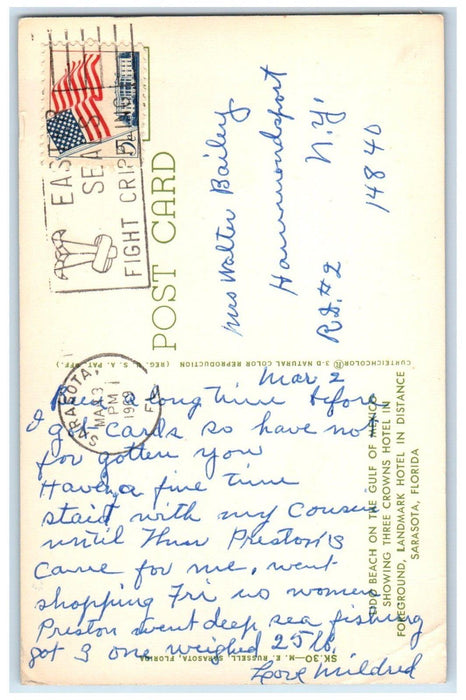 EAST
SEALS
FIGHT CRIP
5c
POST CARD
Mrs Walter Bailey
Hammondsport
R.D.#2 N.Y.
14840
CURTEICHCOLOR® 3-D NATURAL COLOR REPRODUCTION (REG. U. S. A. PAT. OFF.)
SARASOTA,
MAR 3
PM
1969
FL
Mar 2
Been a long time before
I got cards so have not
for gotten you
Have a fine time
staid with my Cousin
until Thur Preston's
came for me, went
shopping Fri us women
Preston went deep sea fishing
got 3 one weighed 25 lb.
Love Mildred
LIDO BEACH ON THE GULF OF MEXICO
SHOWING THREE CROWNS HOTEL IN
FOREGROUND, LANDMARK HOTEL IN DISTANCE
SARASOTA, FLORIDA
SK.30—M. E. RUSSELL, SARASOTA, FLORIDA